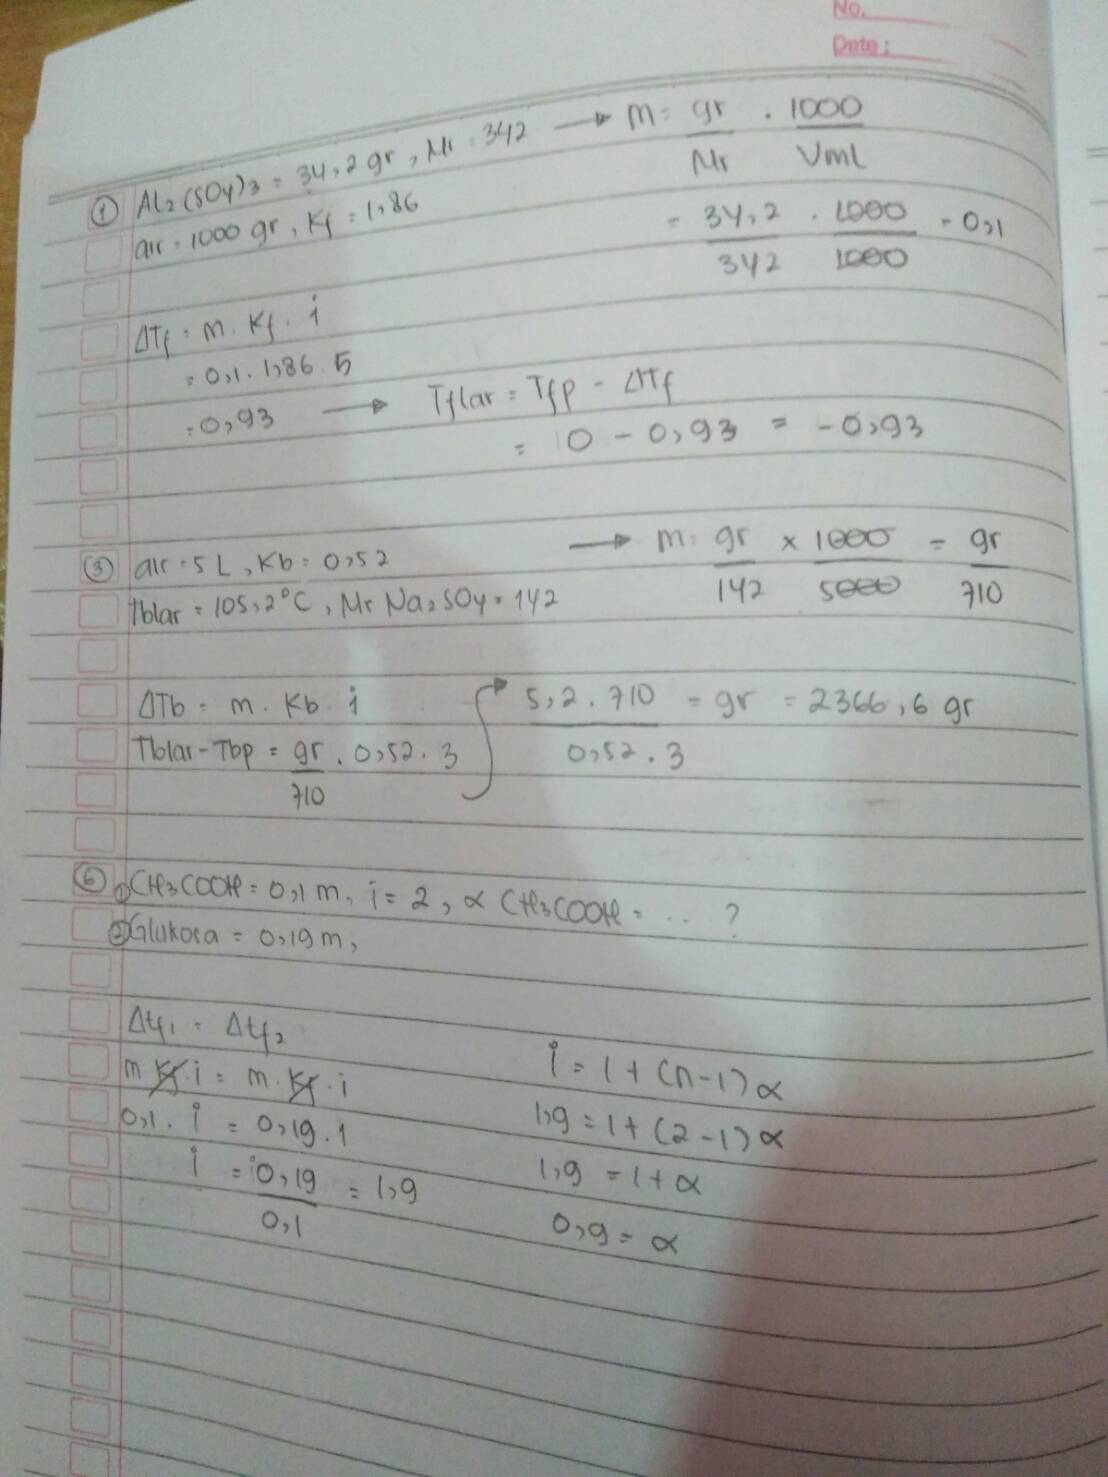 No.
Date:
① Al₂(SO₄)₃ = 34,2 gr, Mr = 342 → m = gr/Mr . 1000/Vml
air = 1000 gr, Kf = 1,86
= 34,2/342 . 1000/1000 = 0,1
ΔTf = m. Kf. i
= 0,1. 1,86. 5
= 0,93 → Tflar = Tfp - ΔTf
= 0 - 0,93 = -0,93
③ air = 5 L, Kb = 0,52 → m = gr/142 x 1000/5000 = gr/710
Tblar = 105,2°C, Mr Na₂SO₄ = 142
ΔTb = m. Kb. i
Tblar - Tbp = gr/710 . 0,52. 3
5,2. 710/0,52. 3 = gr = 2366,6 gr
⑥ ① CH₃COOH = 0,1 m, i = 2, α CH₃COOH = ....?
② Glukosa = 0,19 m,
Δtf₁ = Δtf₂
m Kf. i = m. Kf. i
0,1. i = 0,19. 1
i = 0,19/0,1 = 1,9
i = 1 + (n-1)α
1,9 = 1 + (2-1)α
1,9 = 1 + α
0,9 = α